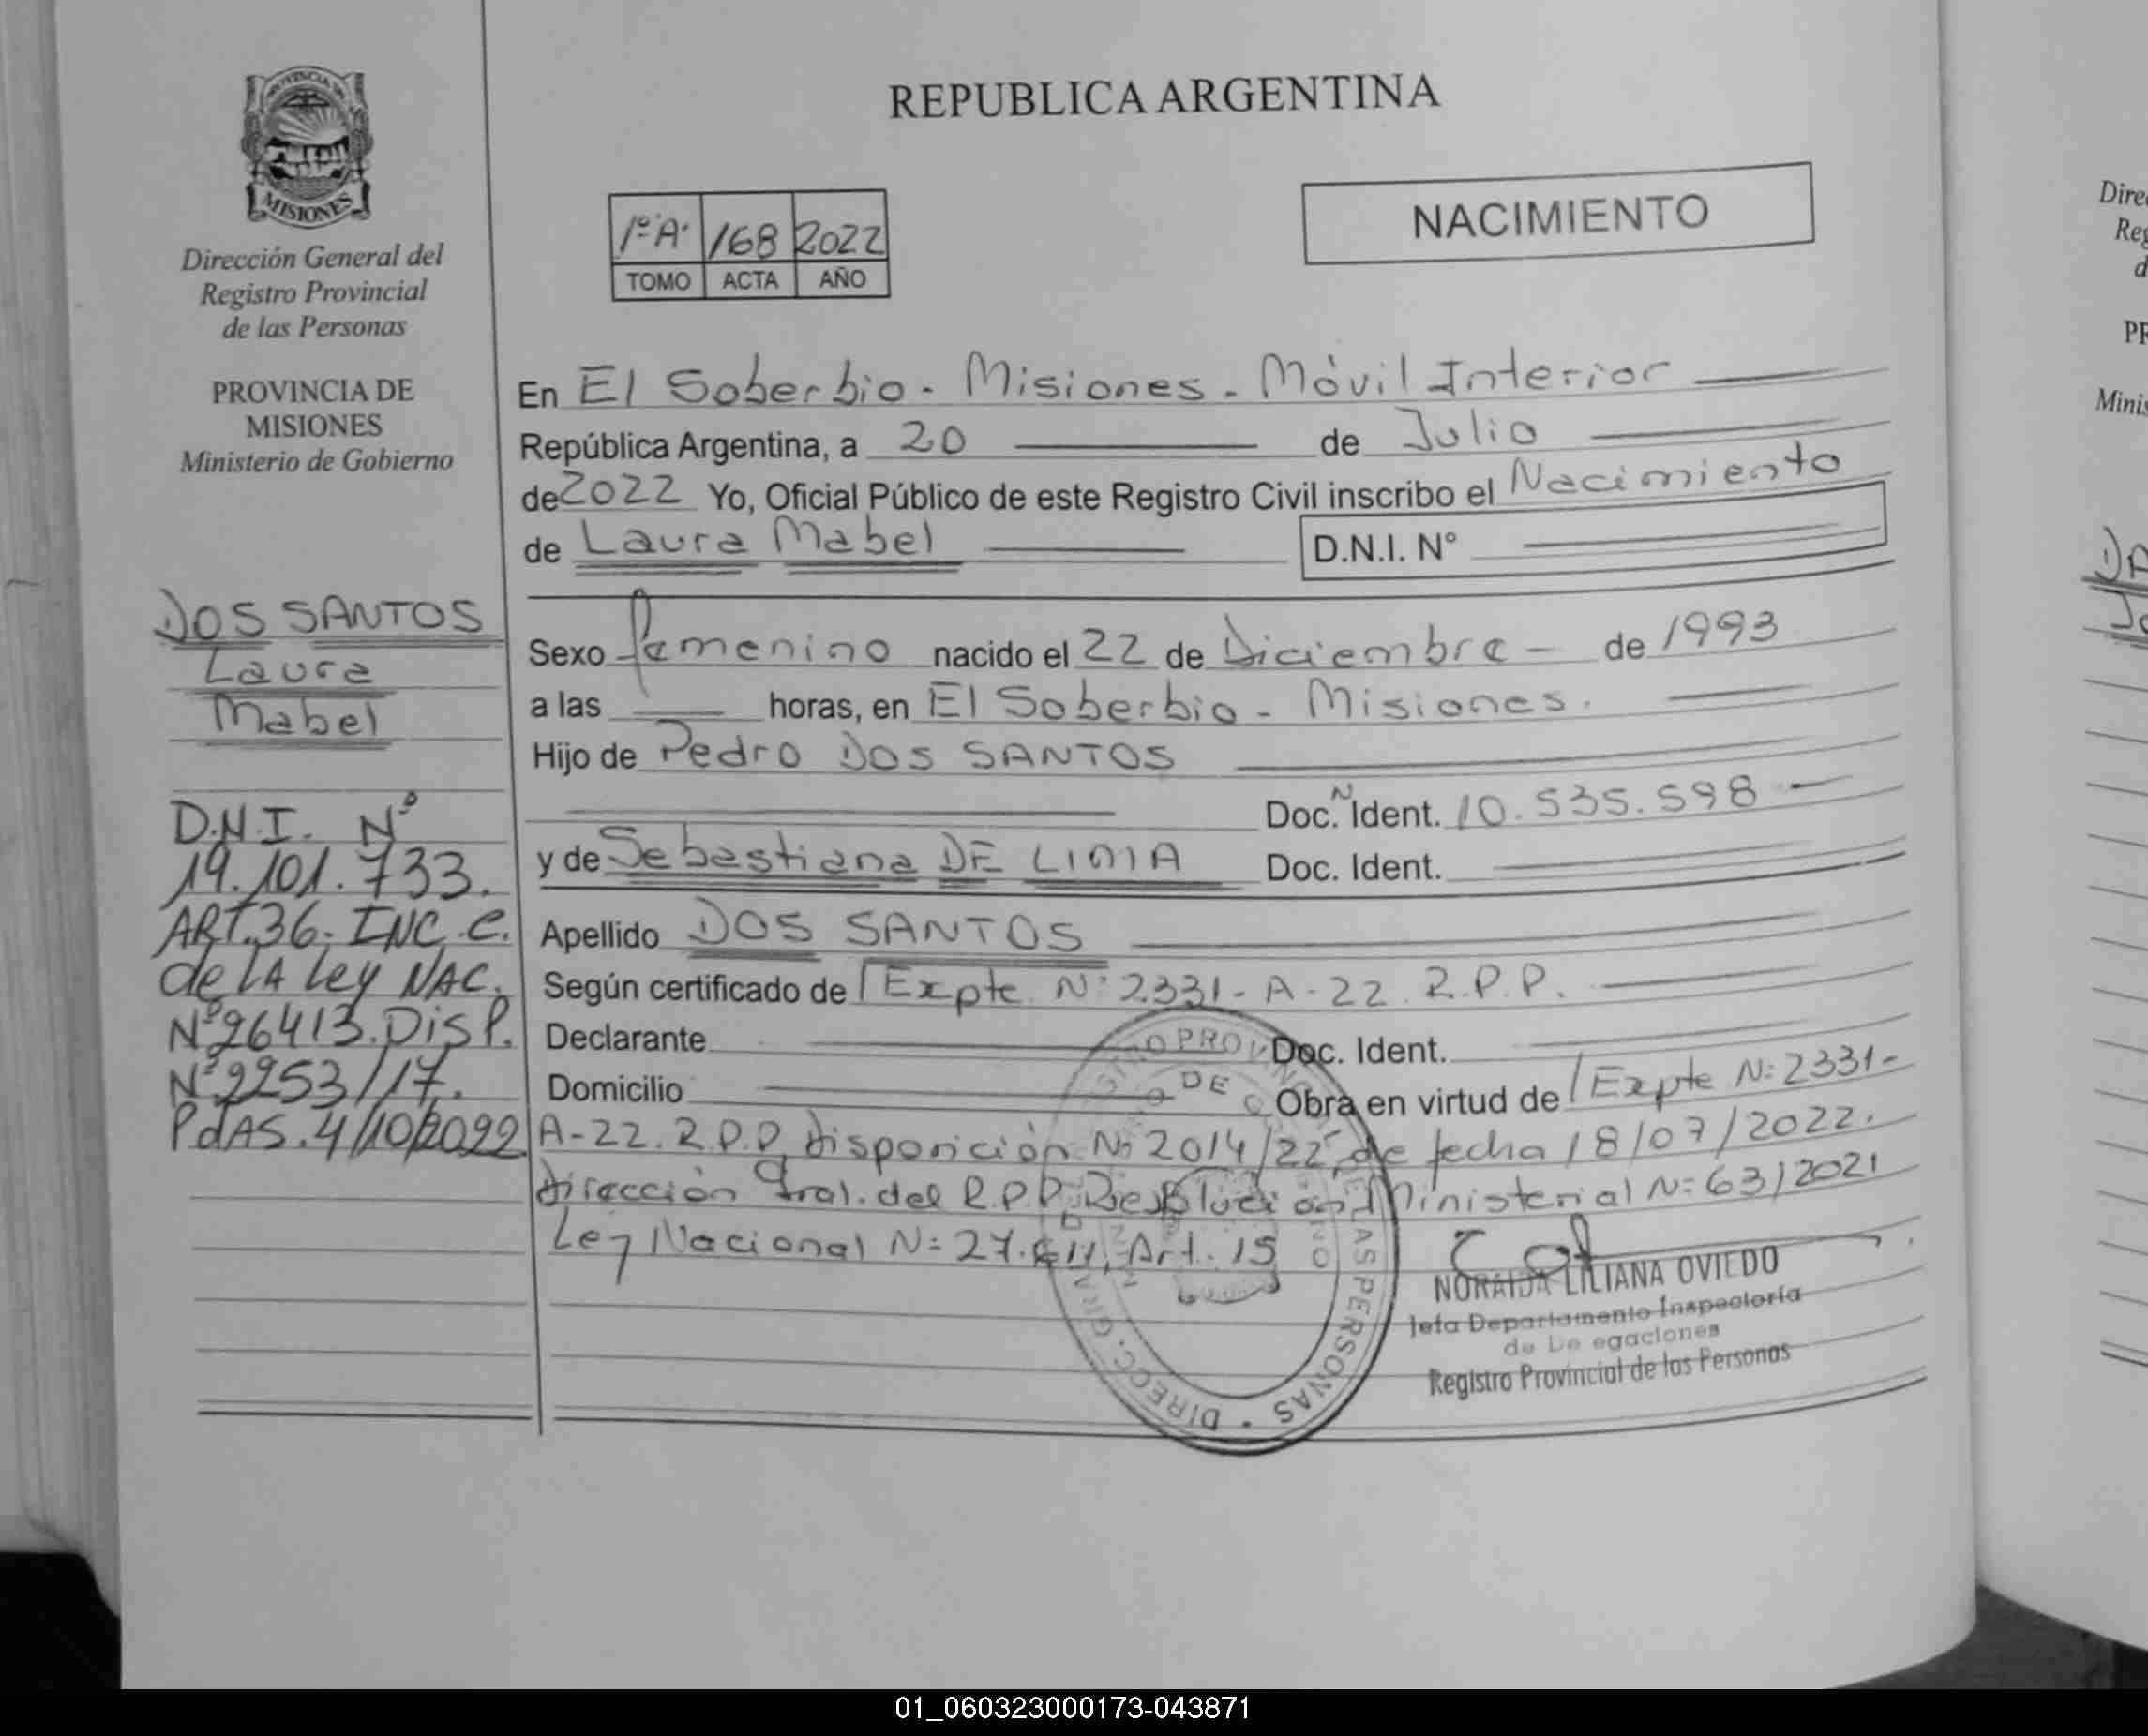 PROVINCIA DE
MISIONES
Dirección General del
Registro Provincial
de las Personas
PROVINCIA DE
MISIONES
Ministerio de Gobierno
DOS SANTOS
Laura
Mabel
D.N.I. Nº
19.101.733.
ART.36. INC. C.
de LA Ley NAC.
Nº26413. DISP.
Nº2253/17.
PdAS. 4/10/2022
REPUBLICA ARGENTINA
1º A. 168 2022
TOMO ACTA AÑO
NACIMIENTO
En El Soberbio - Misiones - Móvil Interior
República Argentina, a 20 de Julio
de 2022 Yo, Oficial Público de este Registro Civil inscribo el Nacimiento
de Laura Mabel D.N.I. N°
Sexo femenino nacido el 22 de Diciembre de 1993
a las horas, en El Soberbio - Misiones.
Hijo de Pedro DOS SANTOS
Doc. Ident. 10.535.598
y de Sebastiana DE LIMA Doc. Ident.
Apellido DOS SANTOS
Según certificado de Expte Nº 2331-A-22. R.P.P.
Declarante Doc. Ident.
Domicilio Obra en virtud de Expte Nº 2331-
A-22. R.P.P. Disposición Nº 2014/22 de fecha 18/07/2022.
Dirección Gral. del R.P.P. Resolución Ministerial Nº 63/2021
Ley Nacional Nº 27.611, Art. 15
NORAIDA LILIANA OVIEDO
Jefa Departamento Inspectoría
de Delegaciones
Registro Provincial de las Personas
DIRECC. GRAL
PERSONAS
Dire
Reg
d
PR
Minis
DA
01_060323000173-043871